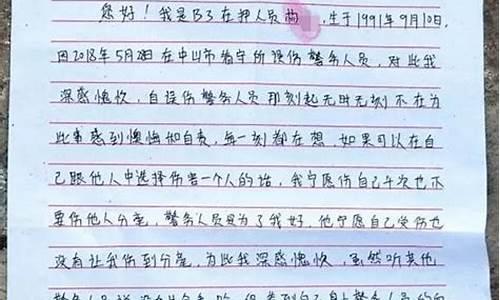 您好！我是B3在押人员 ，生于1991年9月10日.
因2018年5月28日在中山市看守所误伤警务人员，对此我
深感愧疚，自误伤警务人员那刻起无时无刻不在为
此事感到懊悔和自责，每一刻都在想，如果可以在自
己跟他人中选择伤害一个人的话，我宁愿伤自己千次也不
要伤他人分毫，警务人员是为了我好，他宁愿自己受伤也
没有让我伤到分毫，为此我深感愧疚，虽然听其他
警务人员说没有什么